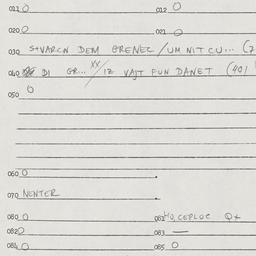 011 0 012 0
020 0 021 0
030 STVARCN DEM GRENEC / UM NIT CU... (7
040 DI GR... XX / IZ VAJT FUN DANET (40/
050 0
060 0
070 NENTER
080 0 081
0820 083 —
084 0 085 0